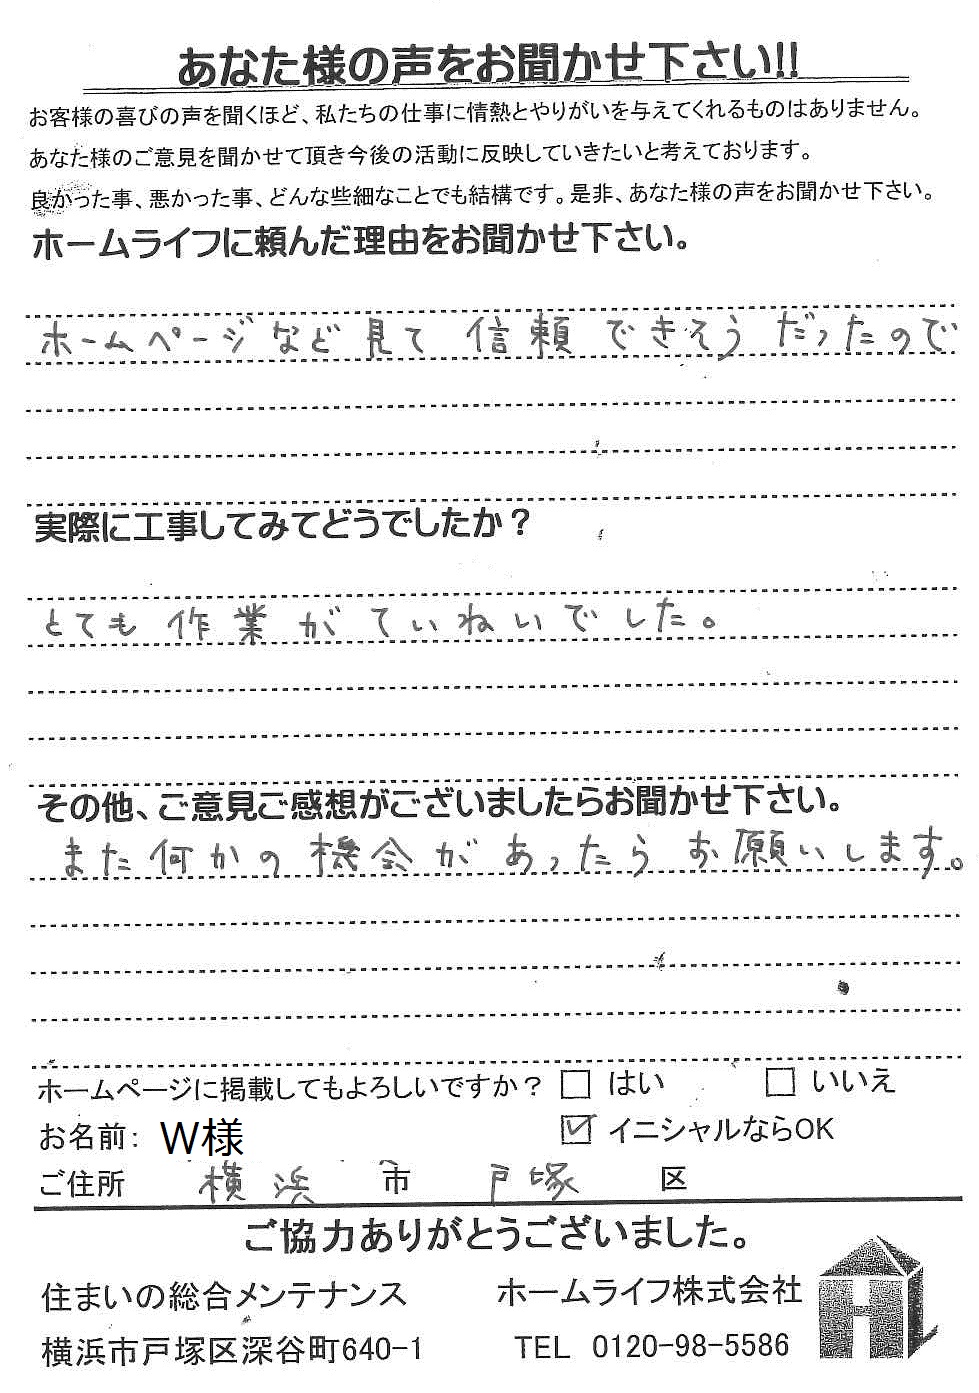 あなた様の声をお聞かせ下さい!!
お客様の喜びの声を聞くほど、私たちの仕事に情熱とやりがいを与えてくれるものはありません。
あなた様のご意見を聞かせて頂き今後の活動に反映していきたいと考えております。
良かった事、悪かった事、どんな些細なことでも結構です。是非、あなた様の声をお聞かせ下さい。
ホームライフに頼んだ理由をお聞かせ下さい。
ホームページなど見て 信頼できそうだったので
実際に工事してみてどうでしたか？
とても作業がていねいでした。
その他、ご意見ご感想がございましたらお聞かせ下さい。
また何かの機会があったらお願いします。
ホームページに掲載してもよろしいですか？ □ はい □ いいえ
お名前: W様 ☑ イニシャルならOK
ご住所 横浜 市 戸塚 区
ご協力ありがとうございました。
住まいの総合メンテナンス ホームライフ株式会社
横浜市戸塚区深谷町640-1 TEL 0120-98-5586
HL